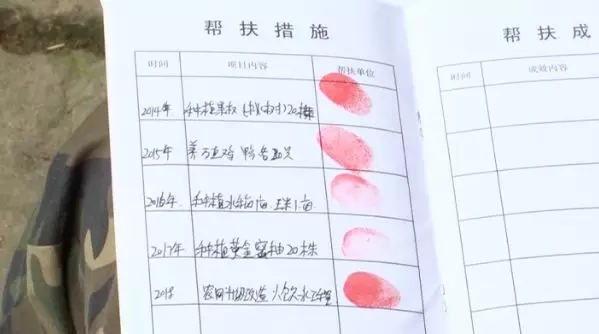 帮扶措施
时间 项目内容 帮扶单位
2014年 种植果权(桃树)20株
2015年 养 鸡 鸭各20只
2016年 种植水稻1亩 玉米1亩
2017年 种植黄金蜜柚20株
2018 农网升级改造 人饮水工程
帮扶成
时间 成效内容